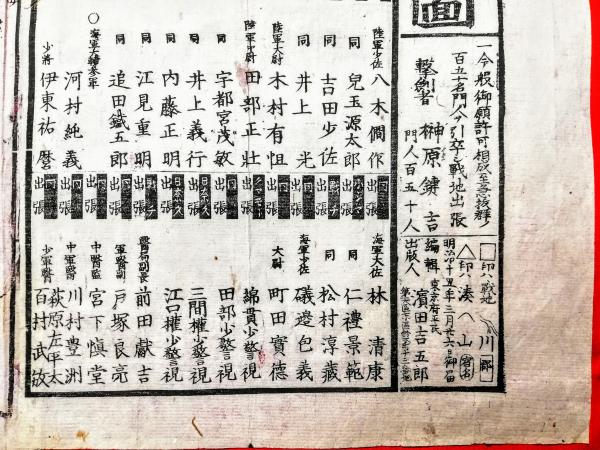 面
一今般御願許可相成至急抜群ノ
百五十名門人ヲ引卒シ戦地出張
撃劔者 榊原鍵吉
門人百五十人
印ハ戦地
川
印ハ湊
山
明治十五年三月廿六日御届
編輯 東京府平民
出版人 濱田吉五郎
陸軍少佐 八木僴作 出張
同 兒玉源太郎 出張
同 吉田少佐 出張
同 井上光 出張
陸軍大尉 木村有恒 出張
陸軍少尉 田部正壯 出張
同 宇都宮茂敏 出張
同 井上義行 出張
同 内藤正明 出張
同 江見重明 出張
同 追田鐵五郎 出張
〇海軍大輔参軍 河村純義 出張
少将 伊東祐麿 出張
海軍大佐 林清康
同 仁禮景範
同 松村淳藏
海軍少佐 磯邉包義
大尉 町田實德
綿貫少警視
田部少警視
三間權少警視
江口權少警視
前田獻吉
軍醫副 戸塚良亮
中醫監 宮下慎堂
中軍醫 川村豊洲
萩原左平太
少軍醫 百村武敬